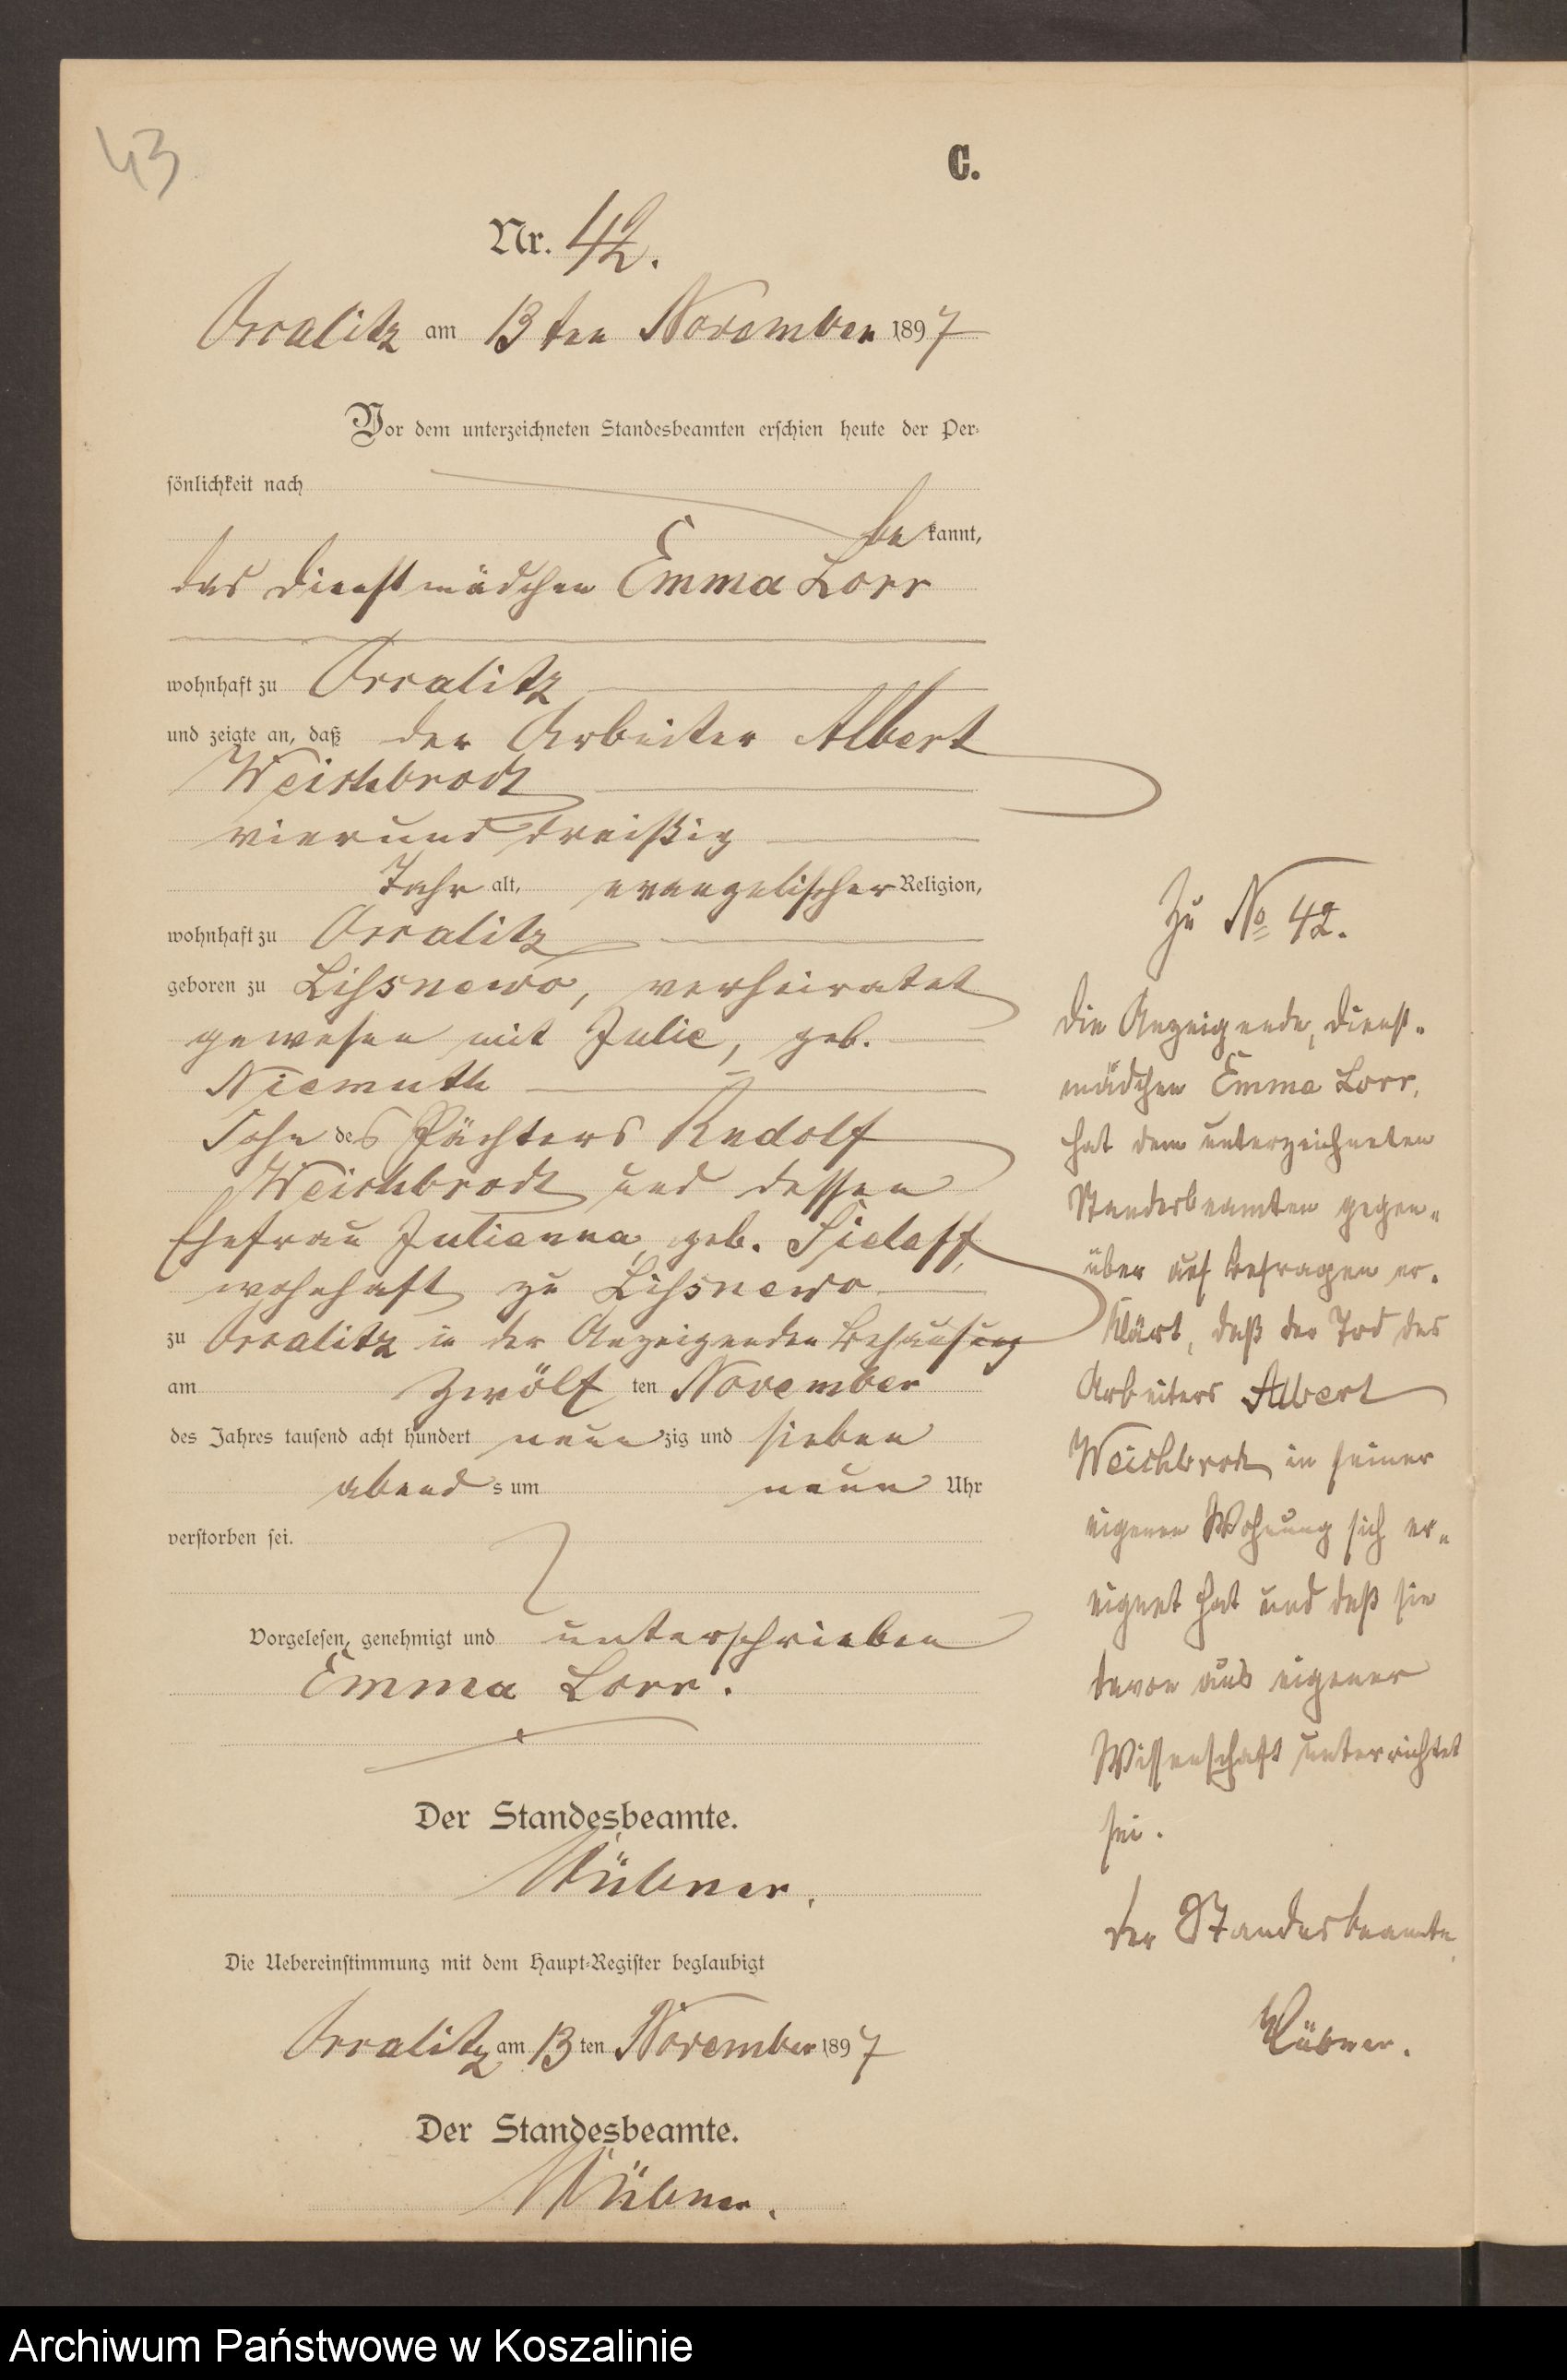 43
C.
Nr. 42.
am 13ten November 1897
Vor dem unterzeichneten Standesbeamten erschien heute der Per-
sönlichkeit nach
bekannt,
das Dienstmädchen Emma Lorr
wohnhaft zu
und zeigte an, daß der Arbeiter Albert
Weichbrodt
vierunddreißig
Jahr alt, evangelischer Religion,
wohnhaft zu
geboren zu Lissnewo, verheiratet
gewesen mit Julie, geb.
Niemuth
Sohn des Pächters Rudolf
Weichbrodt und dessen
Ehefrau Julianna, geb. Sielaff,
wohnhaft zu Lissnewo
zu in der Anzeigenden Behausung
am zwölf ten November
des Jahres tausend acht hundert neunzig und sieben
abends um neun Uhr
verstorben sei.
Vorgelesen, genehmigt und unterschrieben
Emma Lorr.
Der Standesbeamte.
Die Uebereinstimmung mit dem Haupt-Register beglaubigt
am 13ten November 1897
Der Standesbeamte.
Zu No 42.
Die Anzeigende, Dienst-
mädchen Emma Lorr,
hat dem unterzeichneten
Standesbeamten gegen-
über auf Befragen er-
klärt, daß der Tod des
Arbeiters Albert
Weichbrodt in seiner
eigenen Wohnung sich er-
eignet hat und daß sie
davon aus eigener
Wissenschaft unterrichtet
sei.
Der Standesbeamte
Archiwum Państwowe w Koszalinie